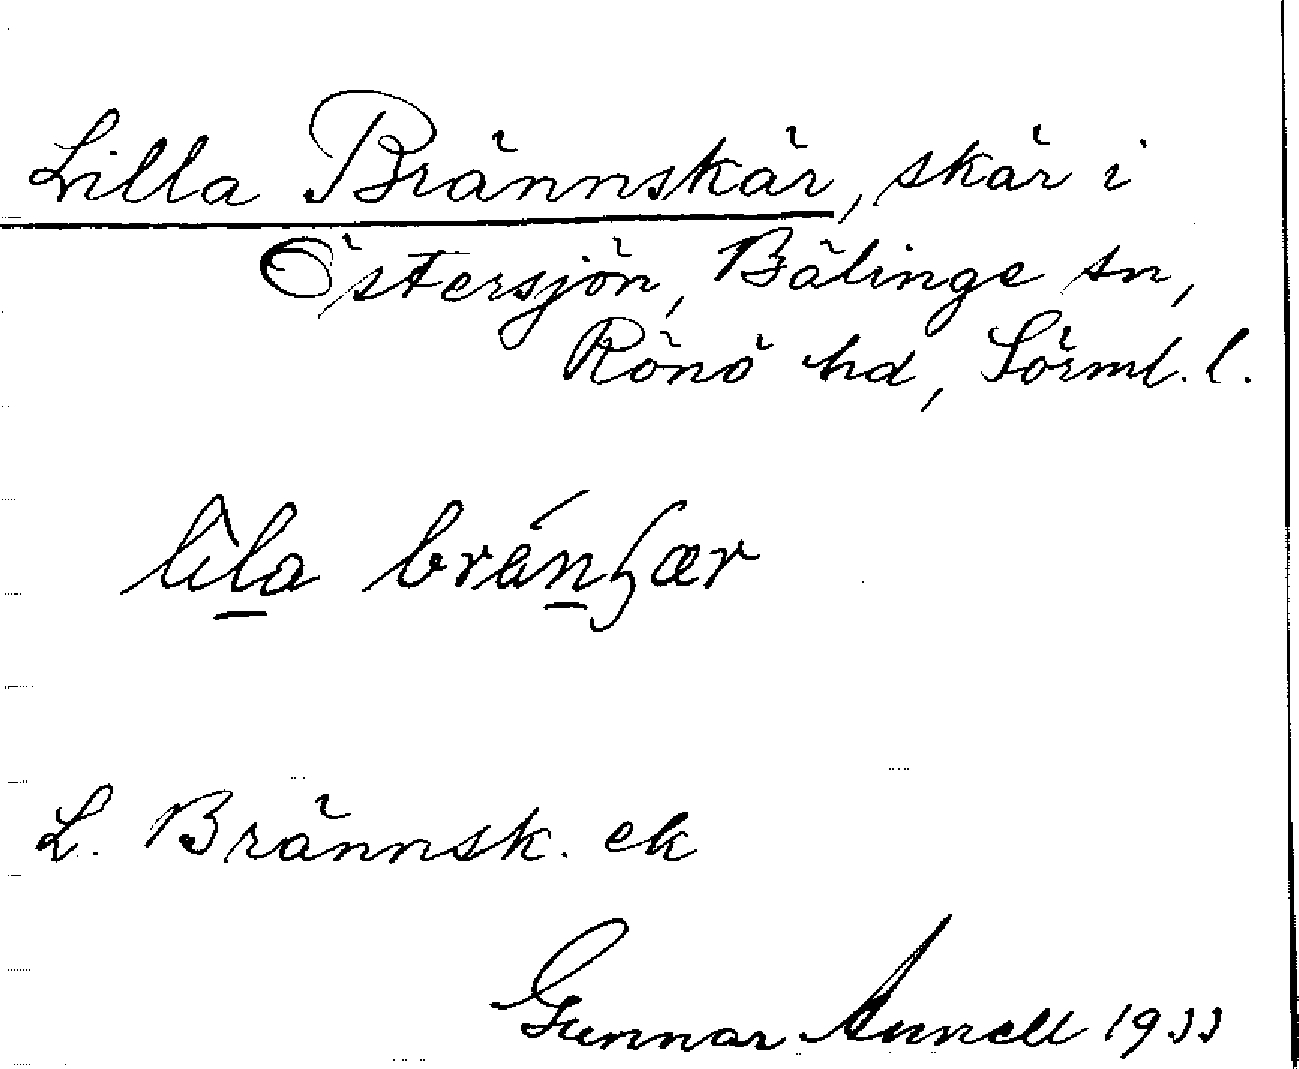 Lilla Brännskär, skär i
Östersjön, Bälinge sn,
Rönö hd, Sörml. l.
lila brän
L. Brännsk. ek
Gunnar Annell 1933